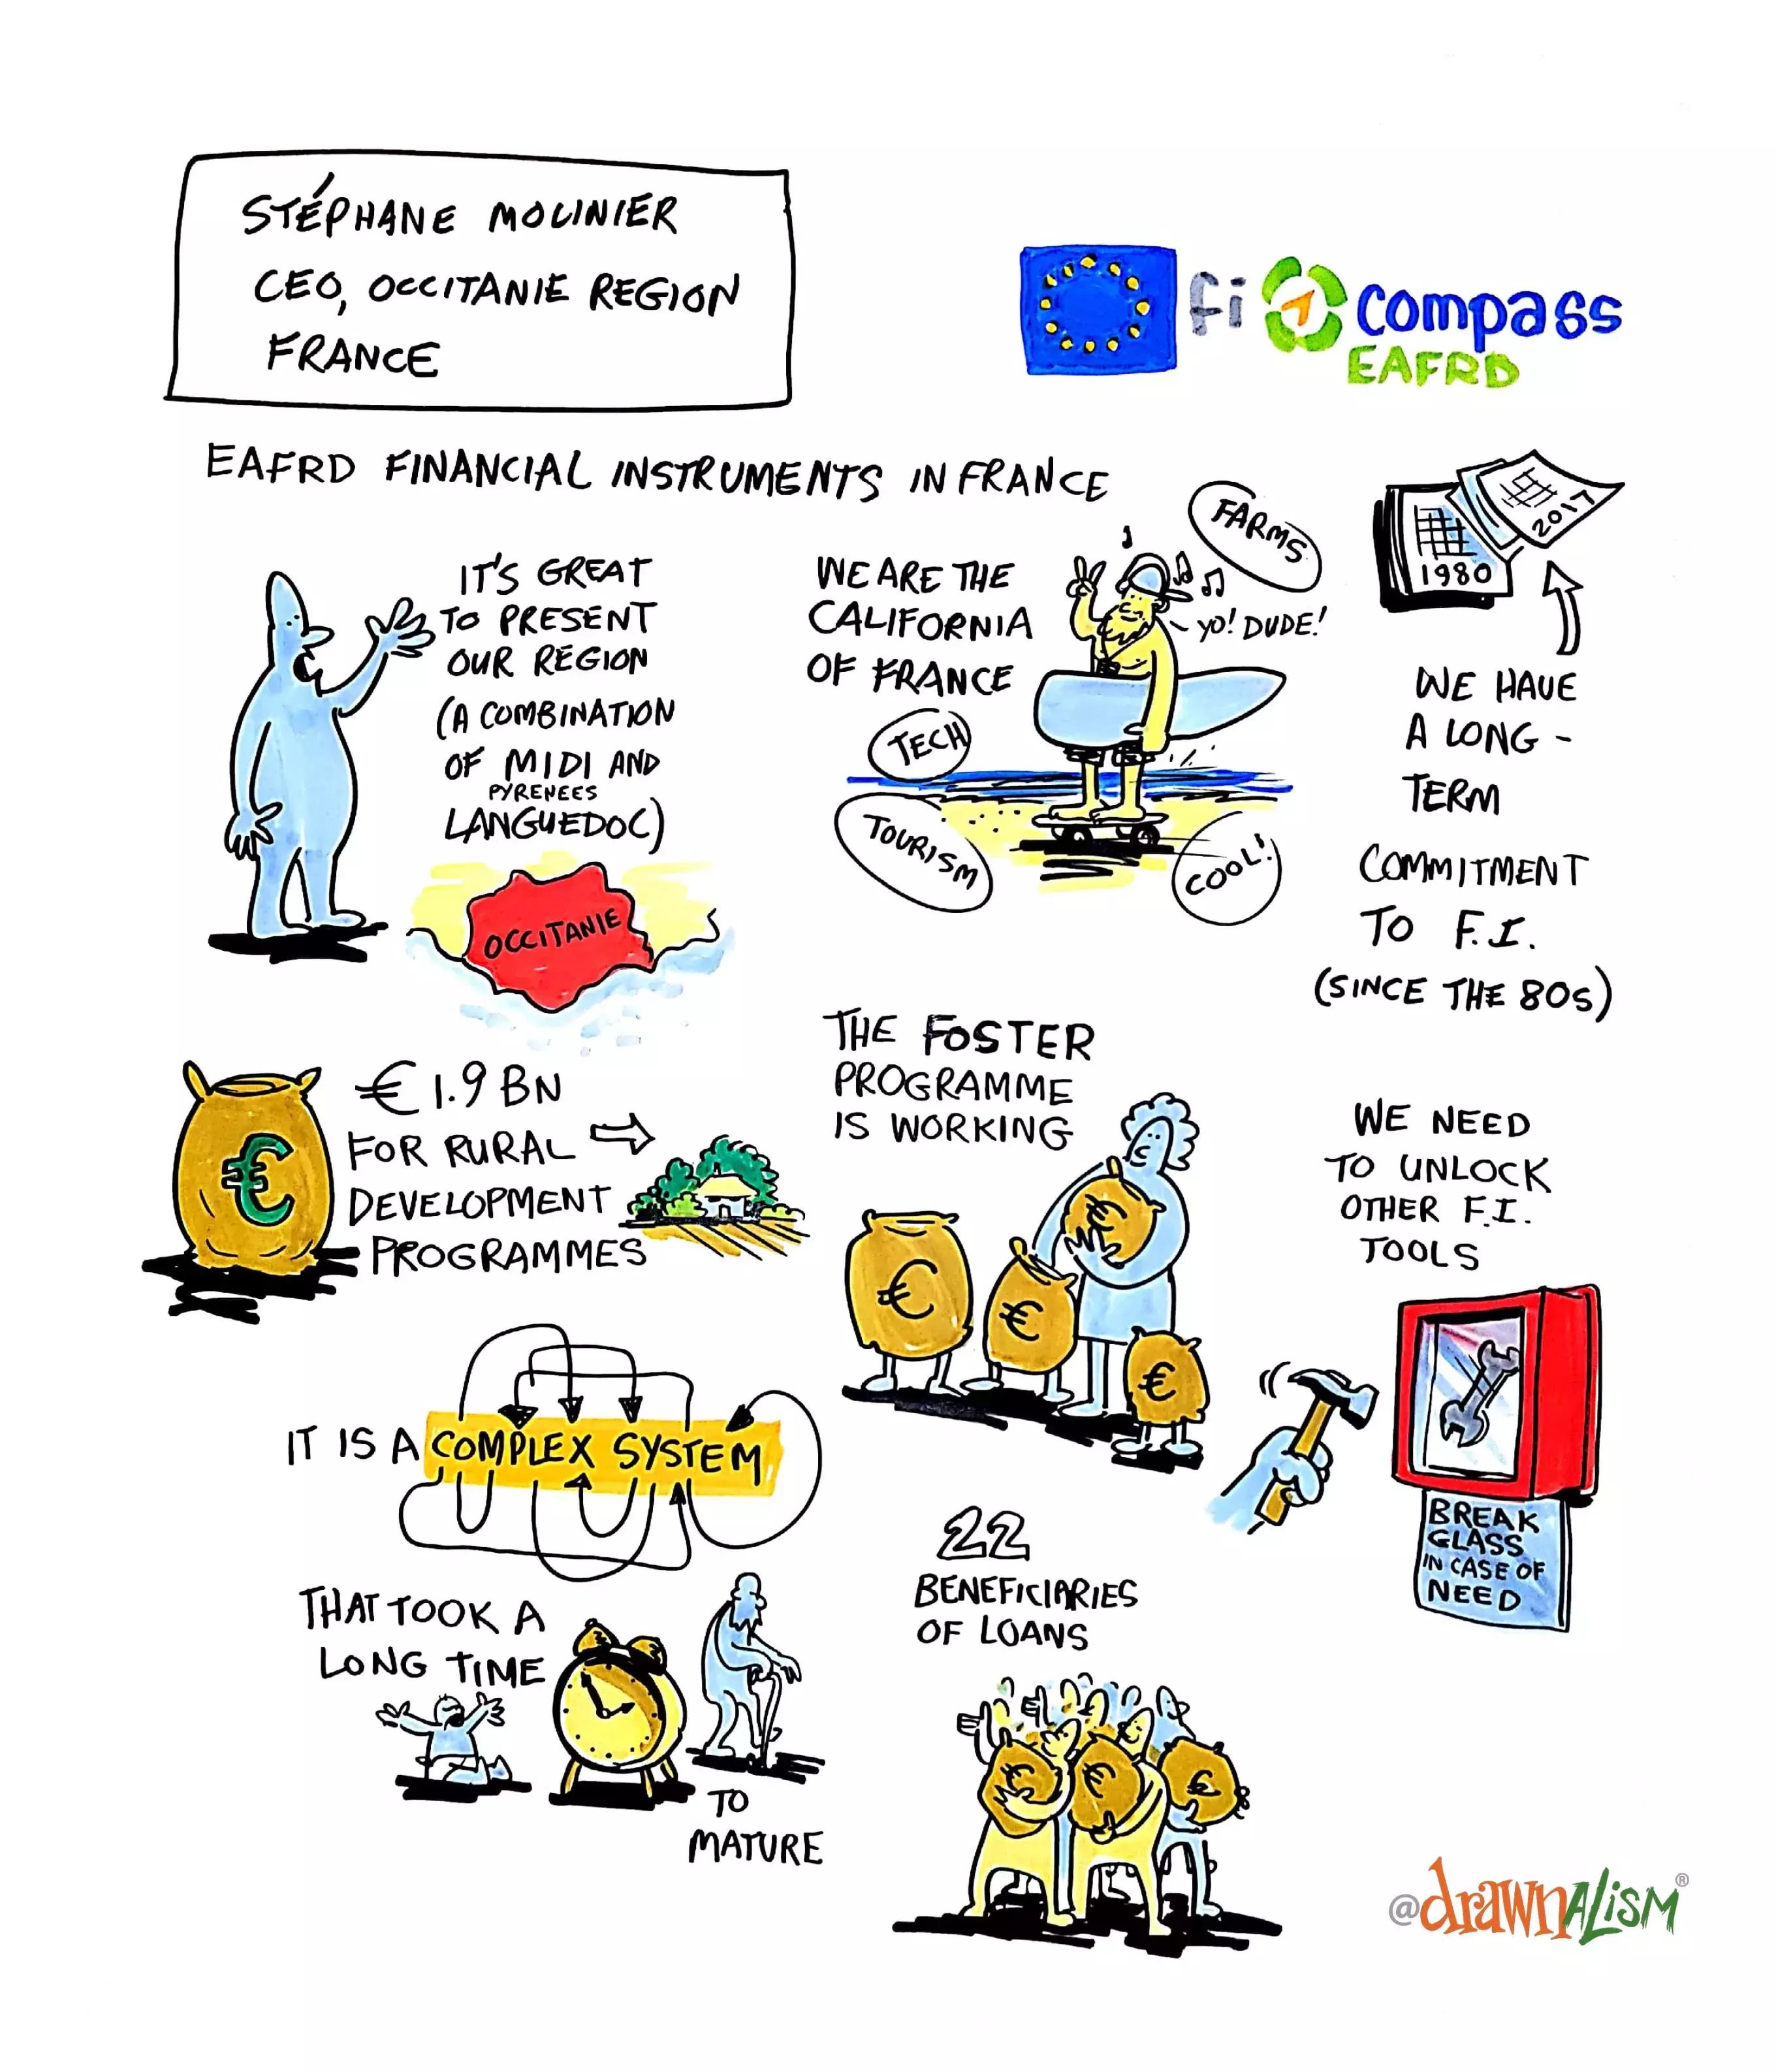 STÉPHANE MOUNIER
CEO, OCCITANIE REGION
FRANCE
fi compass
EAFRD
EAFRD FINANCIAL INSTRUMENTS IN FRANCE
IT'S GREAT
TO PRESENT
OUR REGION
(A COMBINATION
OF MIDI AND
PYRENEES
LANGUEDOC)
OCCITANIE
WE ARE THE
CALIFORNIA
OF FRANCE
FARMS
YO! DUDE!
TECH
TOURISM
COOL!
1980
2017
WE HAVE
A LONG-
TERM
COMMITMENT
TO F.I.
(SINCE THE 80s)
€
€ 1.9 BN
FOR RURAL
DEVELOPMENT
PROGRAMMES
THE FOSTER
PROGRAMME
IS WORKING
€
€
€
€
WE NEED
TO UNLOCK
OTHER F.I.
TOOLS
BREAK
GLASS
IN CASE OF
NEED
IT IS A COMPLEX SYSTEM
THAT TOOK A
LONG TIME
TO
MATURE
22
BENEFICIARIES
OF LOANS
€
€
€
@drawnALiSM®